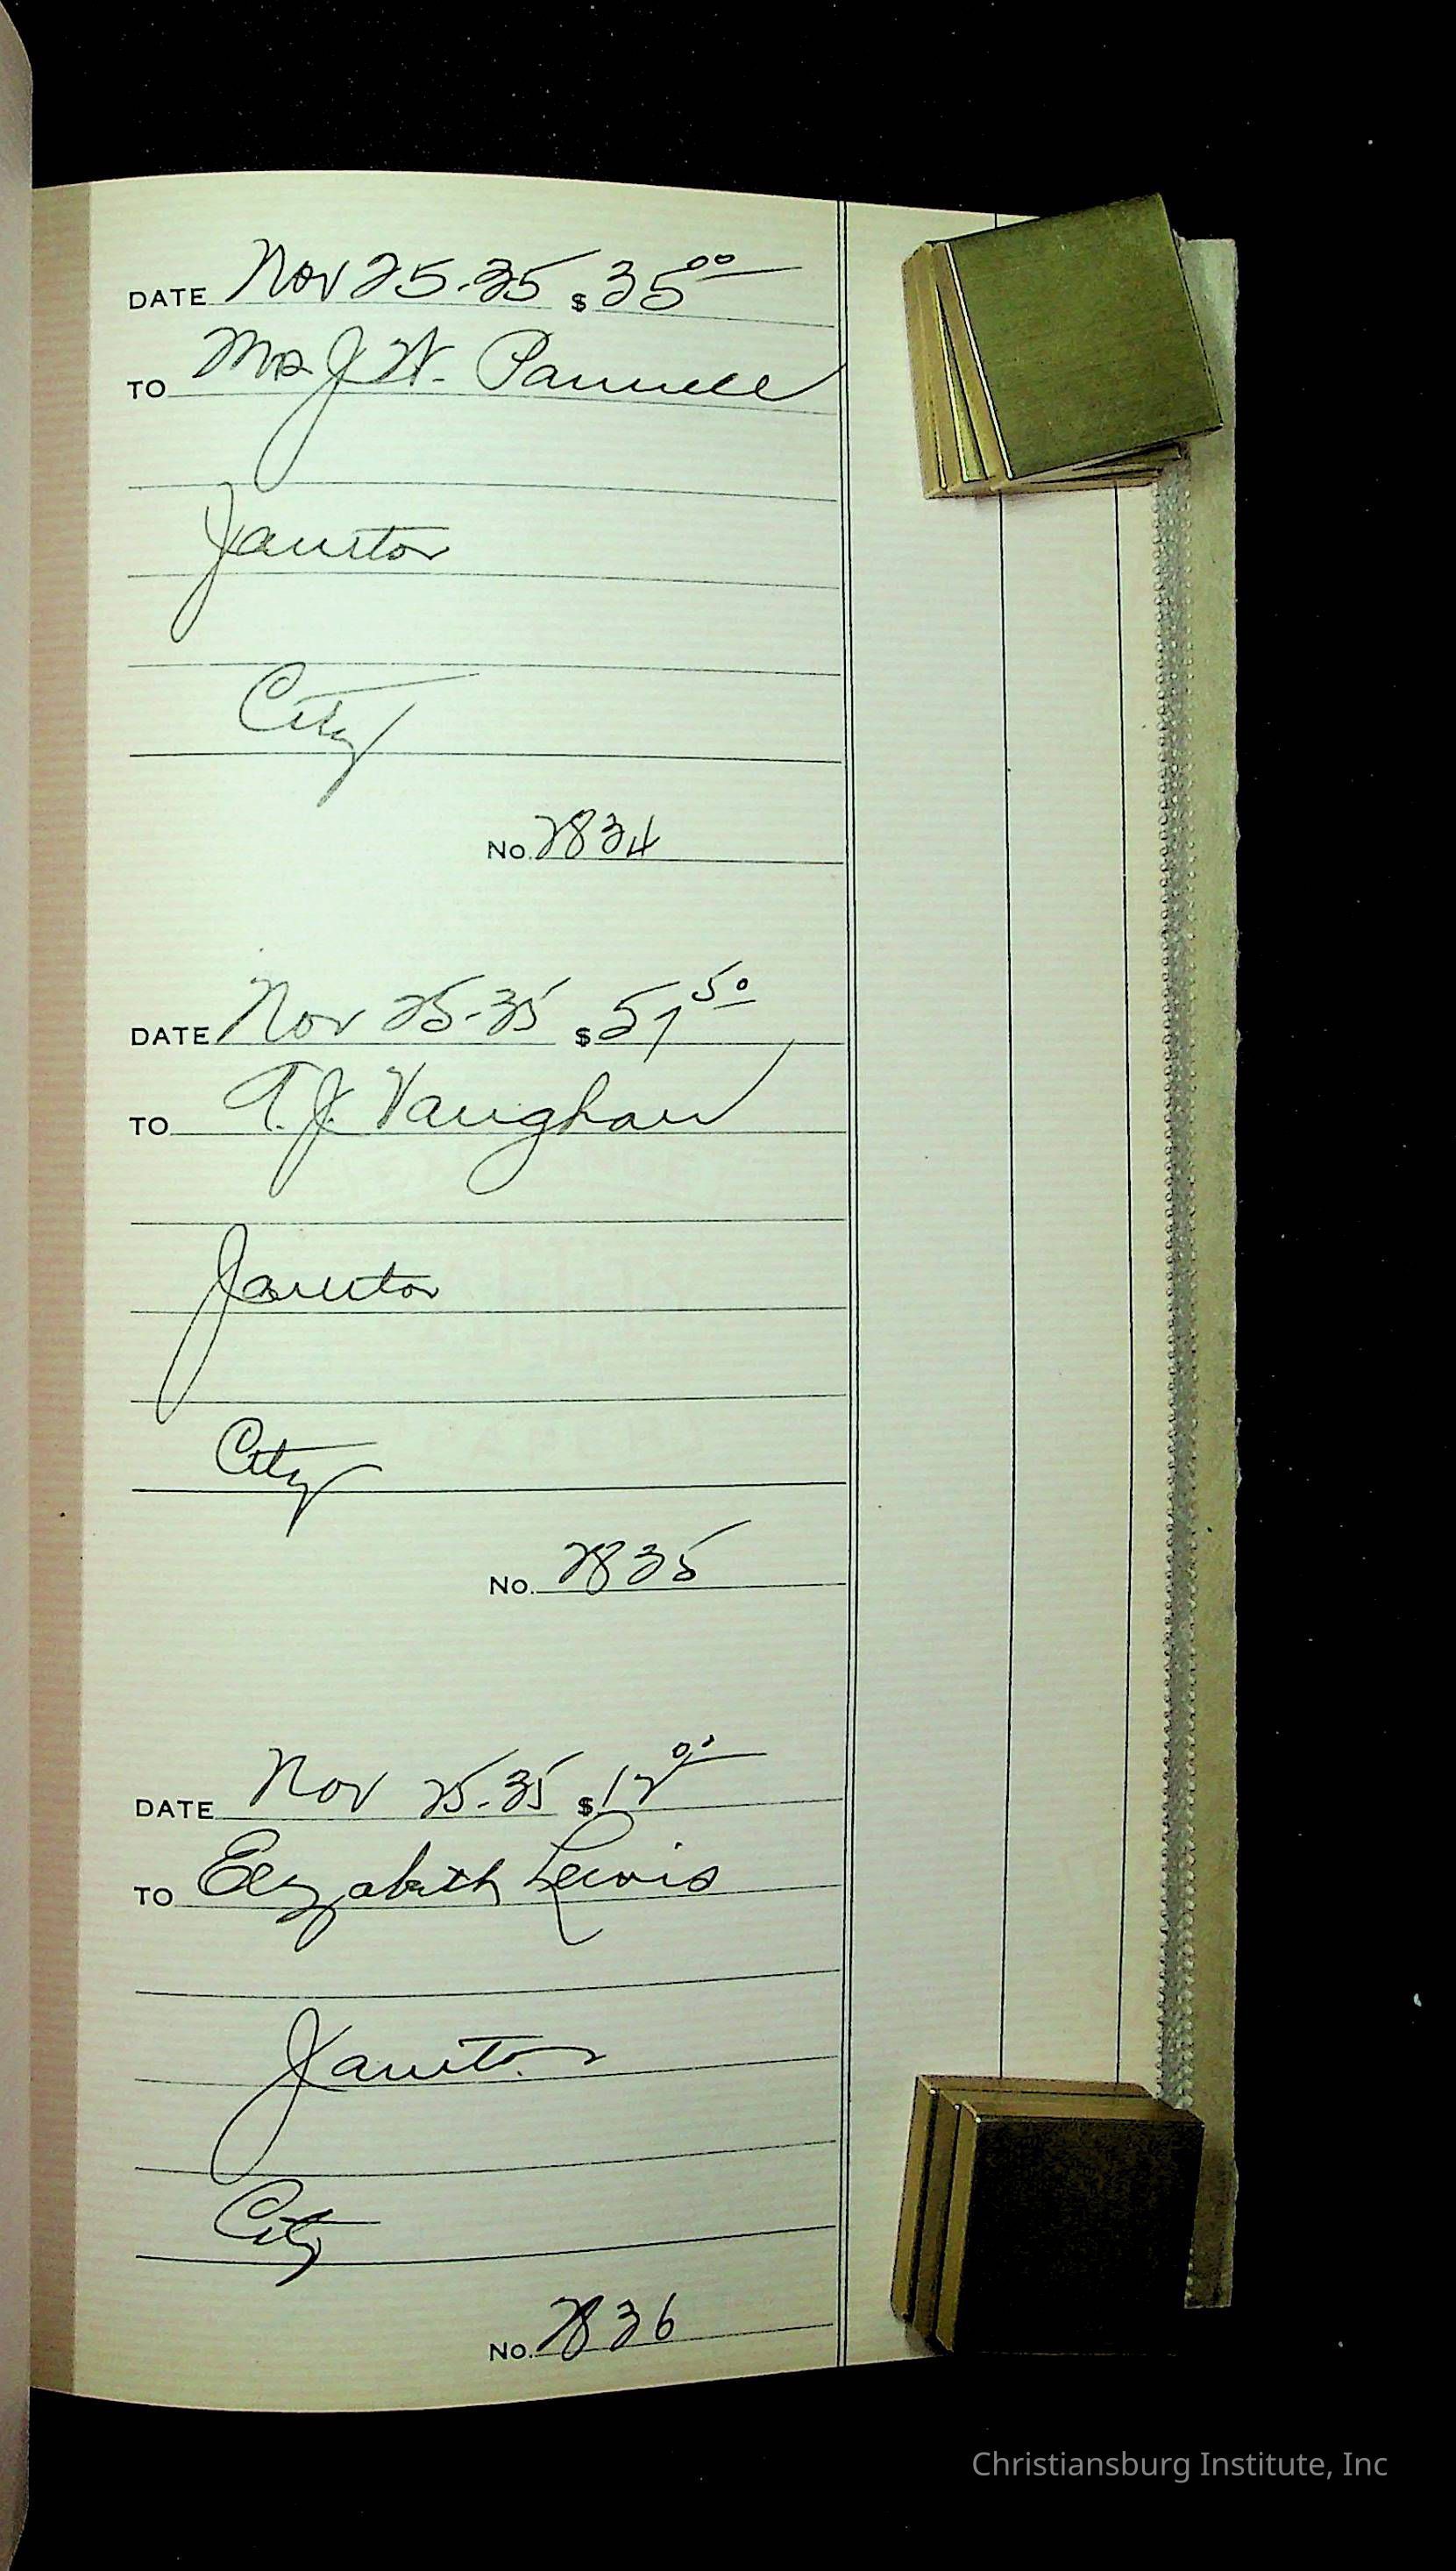 DATE Nov 25-35 $ 35 00
TO Mrs J. W. Pannell
Janitor
City
No. 2834
DATE Nov 25-35 $ 57 50
TO T. J. Vaughan
Janitor
City
No. 2835
DATE Nov 25-35 $ 12 00
TO Elizabeth Lewis
Janitor
City
No. 2836
Christiansburg Institute, Inc